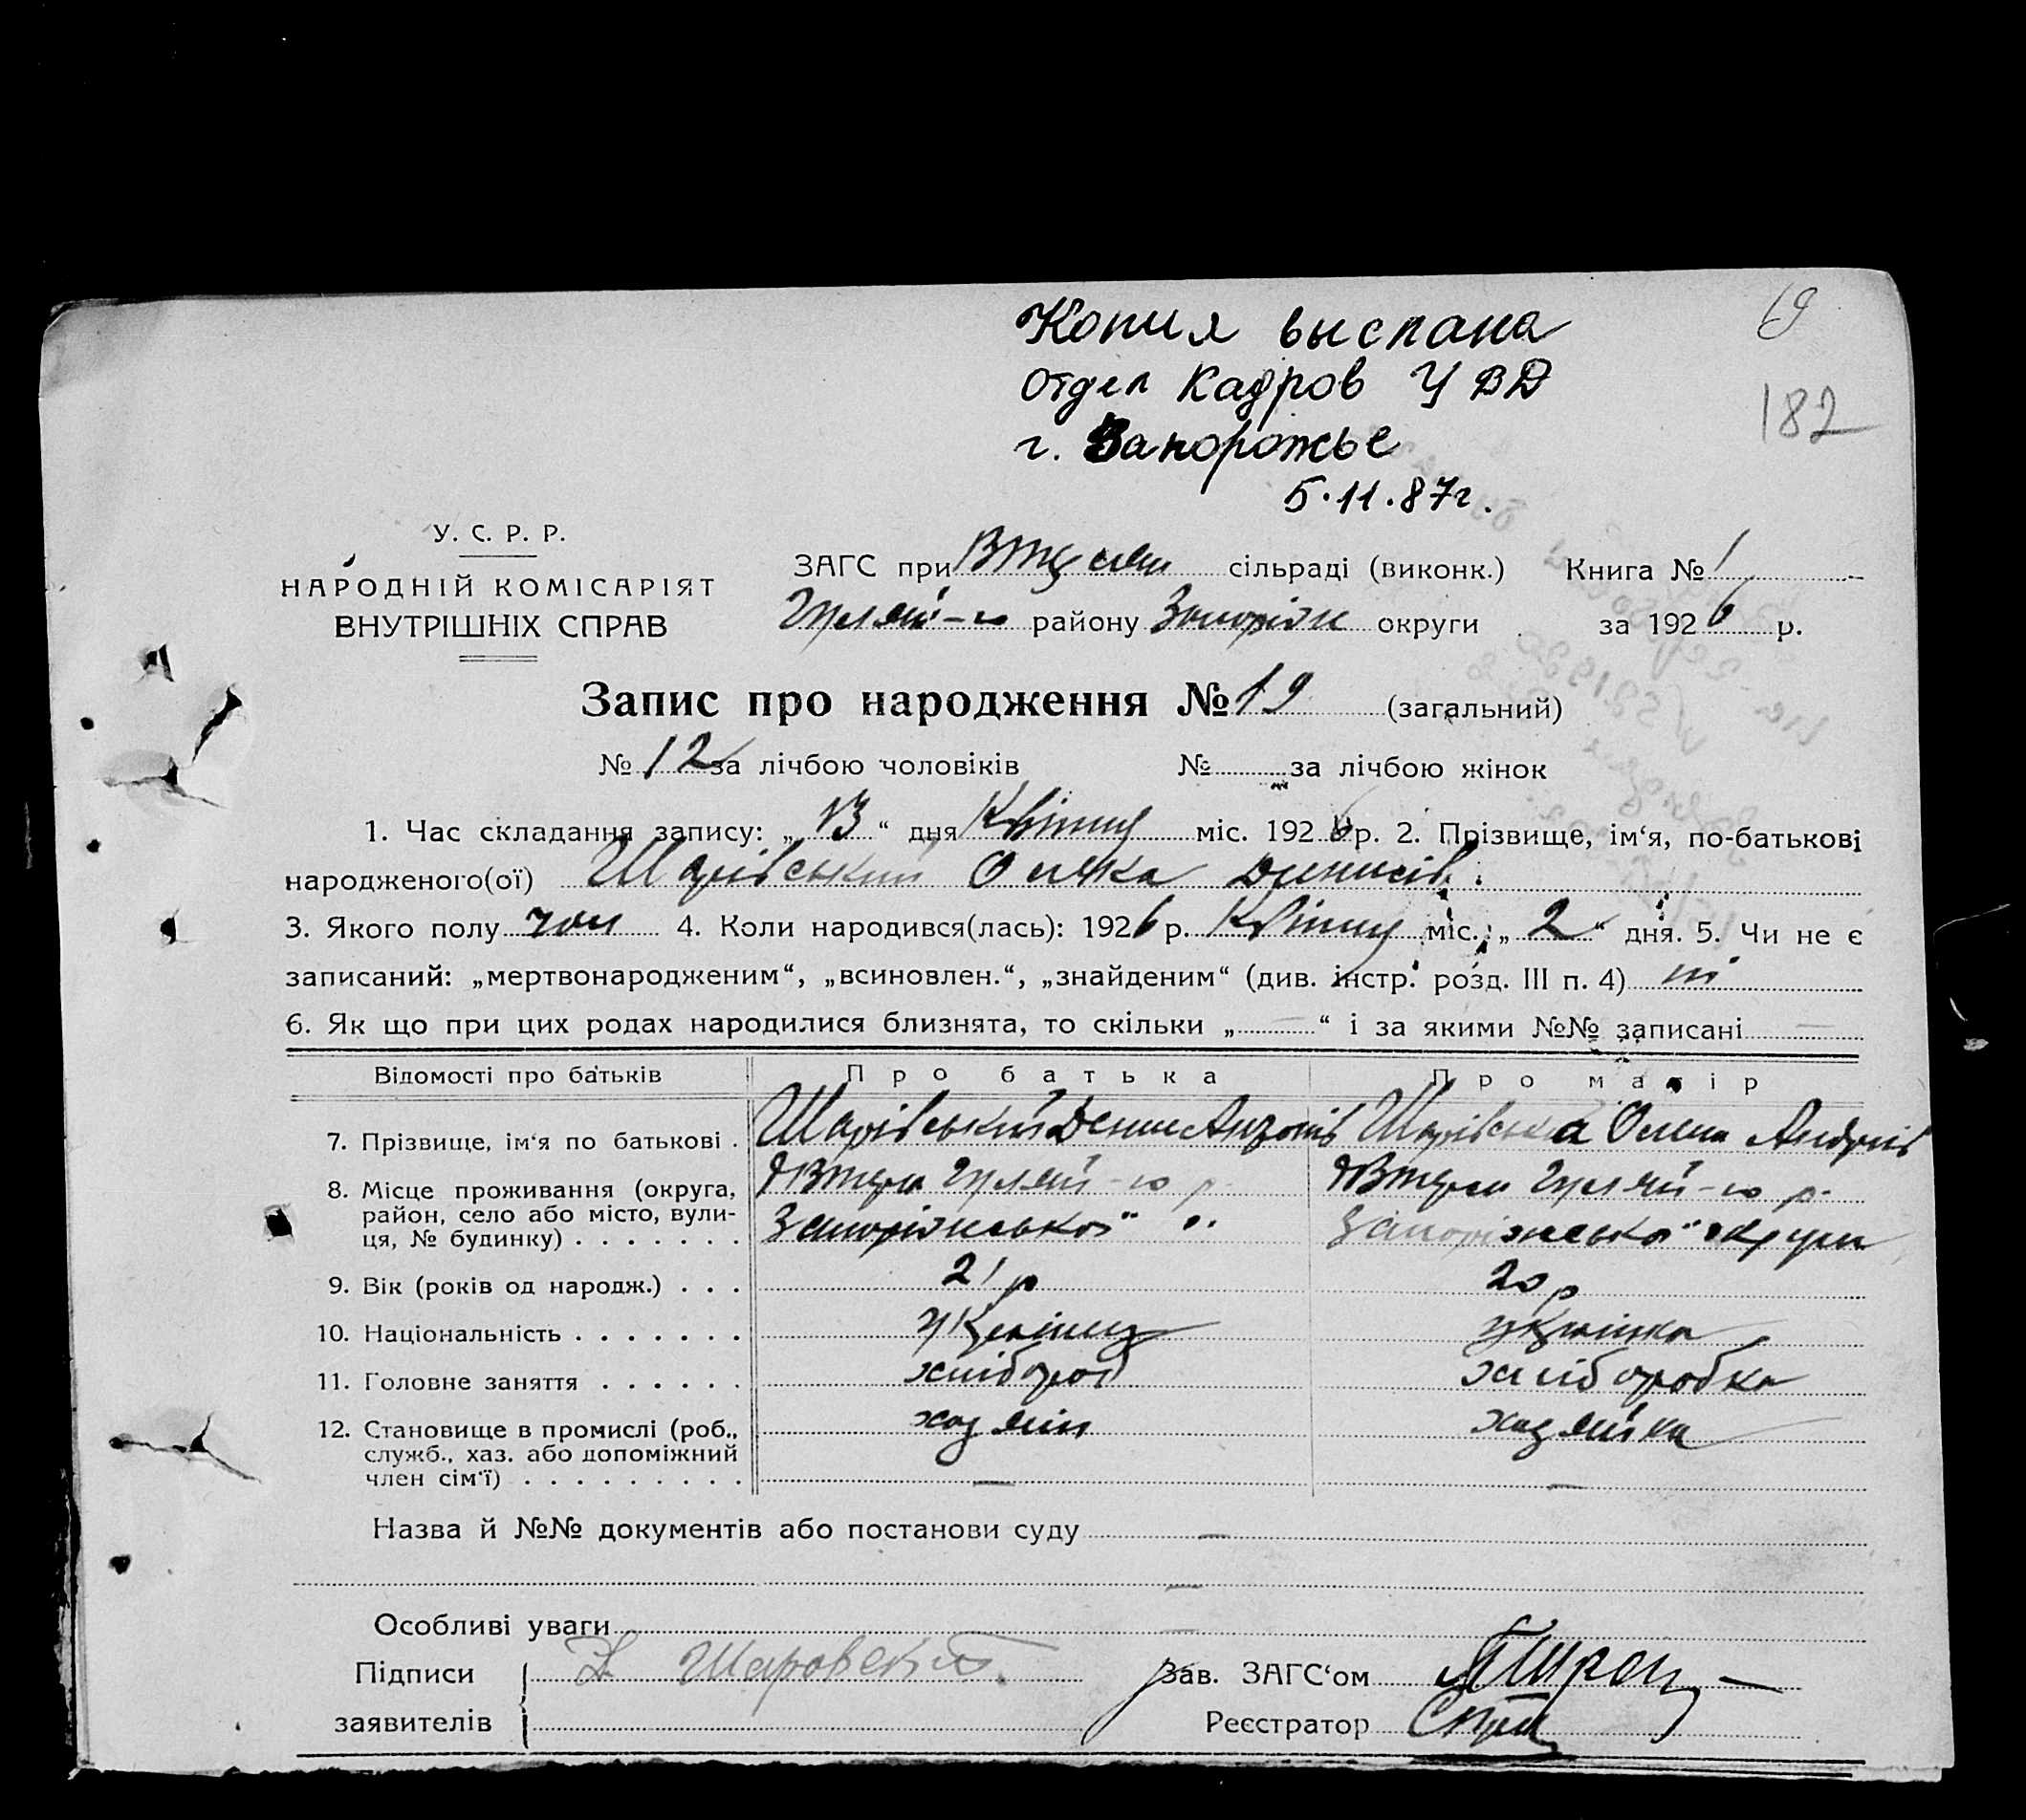 Копия выслана
отдел кадров УВД
г. Запорожье
5.11.87г.
19
182
У. С. Р. Р.
НАРОДНІЙ КОМІСАРІЯТ
ВНУТРІШНІХ СПРАВ
ЗАГС при сільраді (виконк.) Книга № 1
Гуляй-го району Запоріж округи за 1926 р.
Запис про народження № 19 (загальний)
№ 12 за лічбою чоловіків № за лічбою жінок
1. Час складання запису: „13“ дня Квітня міс. 1926 р. 2. Прізвище, ім‘я, по-батькові
народженого(ої) Шарівський Денисів.
3. Якого полу чол 4. Коли народився(лась): 1926 р. Квітня міс. „2“ дня. 5. Чи не є
записаний: „мертвонародженим“, „всиновлен.“, „знайденим“ (див. інстр. розд. III п. 4) ні
6. Як що при цих родах народилися близнята, то скільки „—“ і за якими №№ записані —
Відомості про батьків Про батька Про матір
7. Прізвище, ім‘я по батькові . Шарівський Денис Антонів Шарівська Олена Андріїв
8. Місце проживання (округа, Гуляй-го р. Гуляй-го р.
район, село або місто, вули- Запоріжської Запоріжської округи
ця, № будинку) . . . . . . .
9. Вік (років од народж.) . . . 21 р 20 р
10. Національність . . . . . . . Україниць українка
11. Головне заняття . . . . . . хлібороб хліборобка
12. Становище в промислі (роб., хазяїн хазяйка
служб., хаз. або допоміжний
член сім‘ї) . . . . . . . . . — —
Назва й №№ документів або постанови суду —
—
Особливі уваги —
Підписи Д Шаровский. Зав. ЗАГС‘ом
заявителів Реєстратор